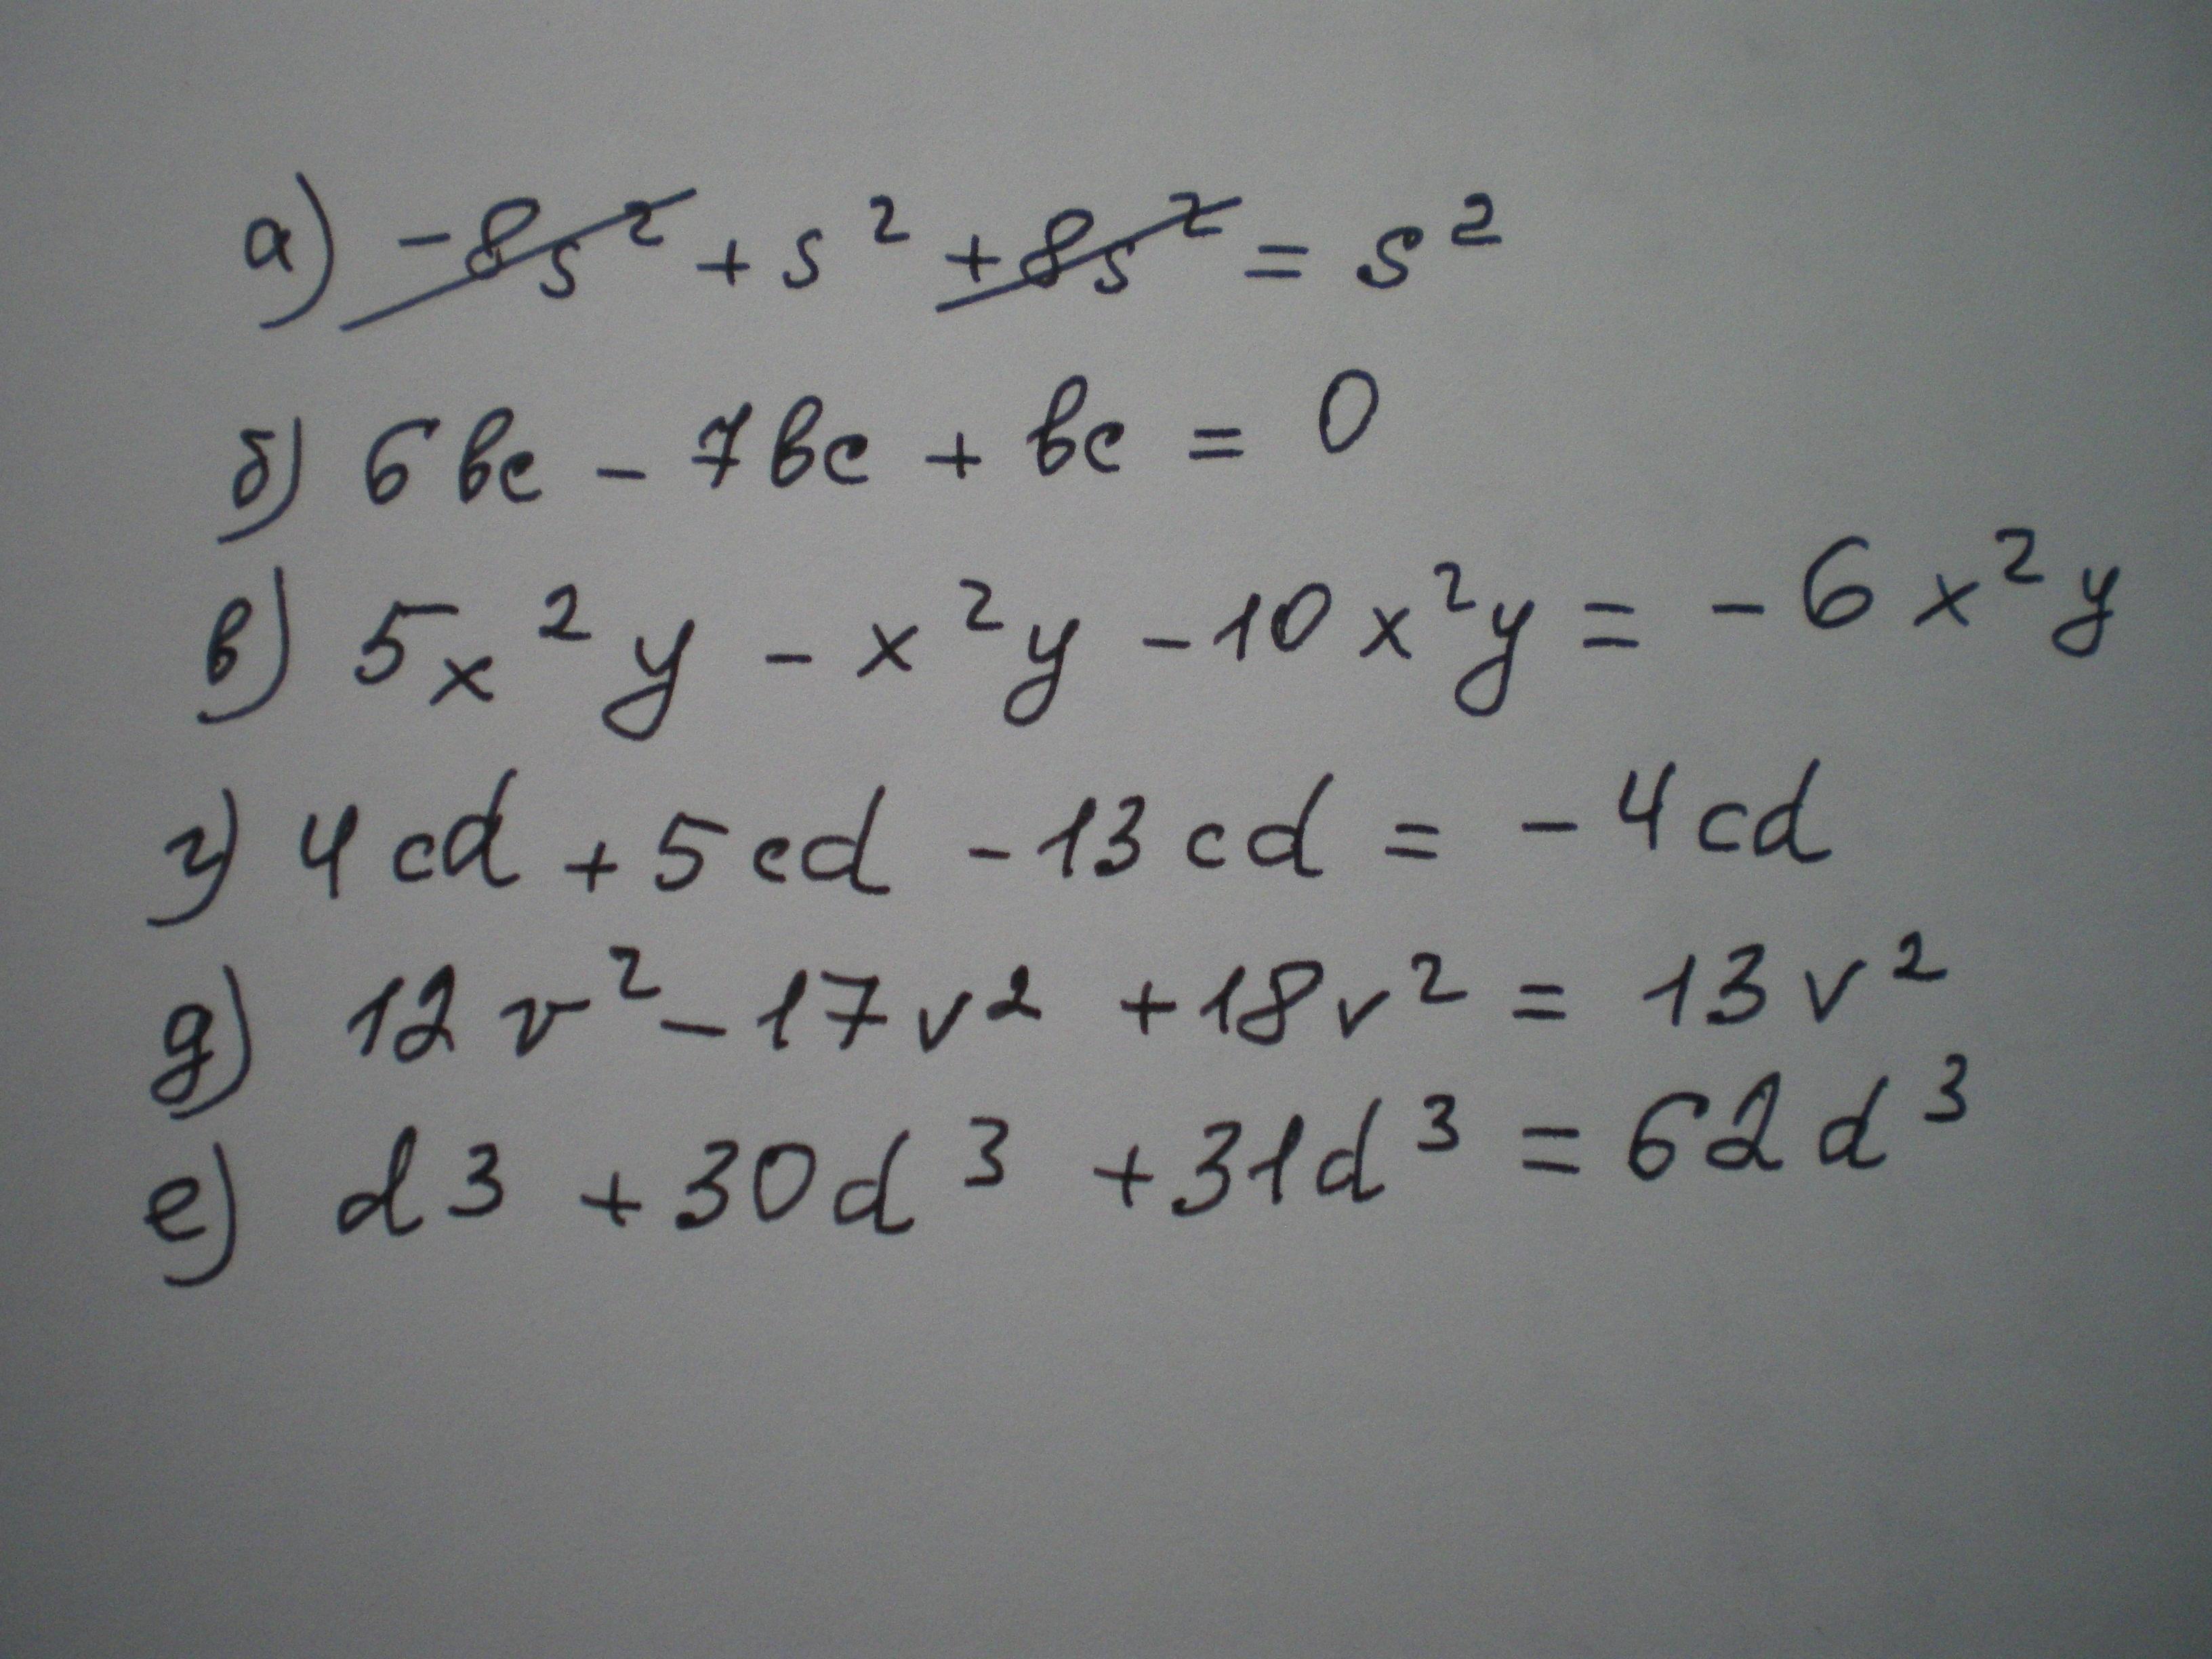 а) -8s² + s² + 8s² = s²
б) 6bc - 7bc + bc = 0
в) 5x²y - x²y - 10x²y = -6x²y
г) 4cd + 5cd - 13cd = -4cd
д) 12v² - 17v² + 18v² = 13v²
е) d³ + 30d³ + 31d³ = 62d³